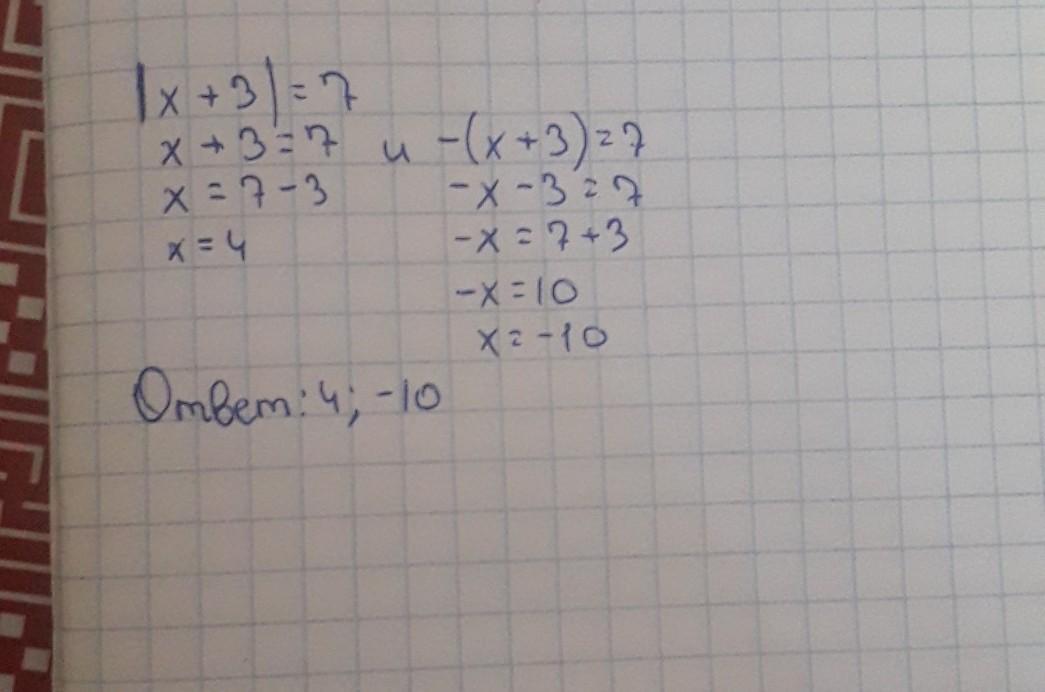 |x + 3| = 7
x + 3 = 7 и -(x + 3) = 7
x = 7 - 3 -x - 3 = 7
x = 4 -x = 7 + 3
-x = 10
x = -10
Ответ: 4; -10